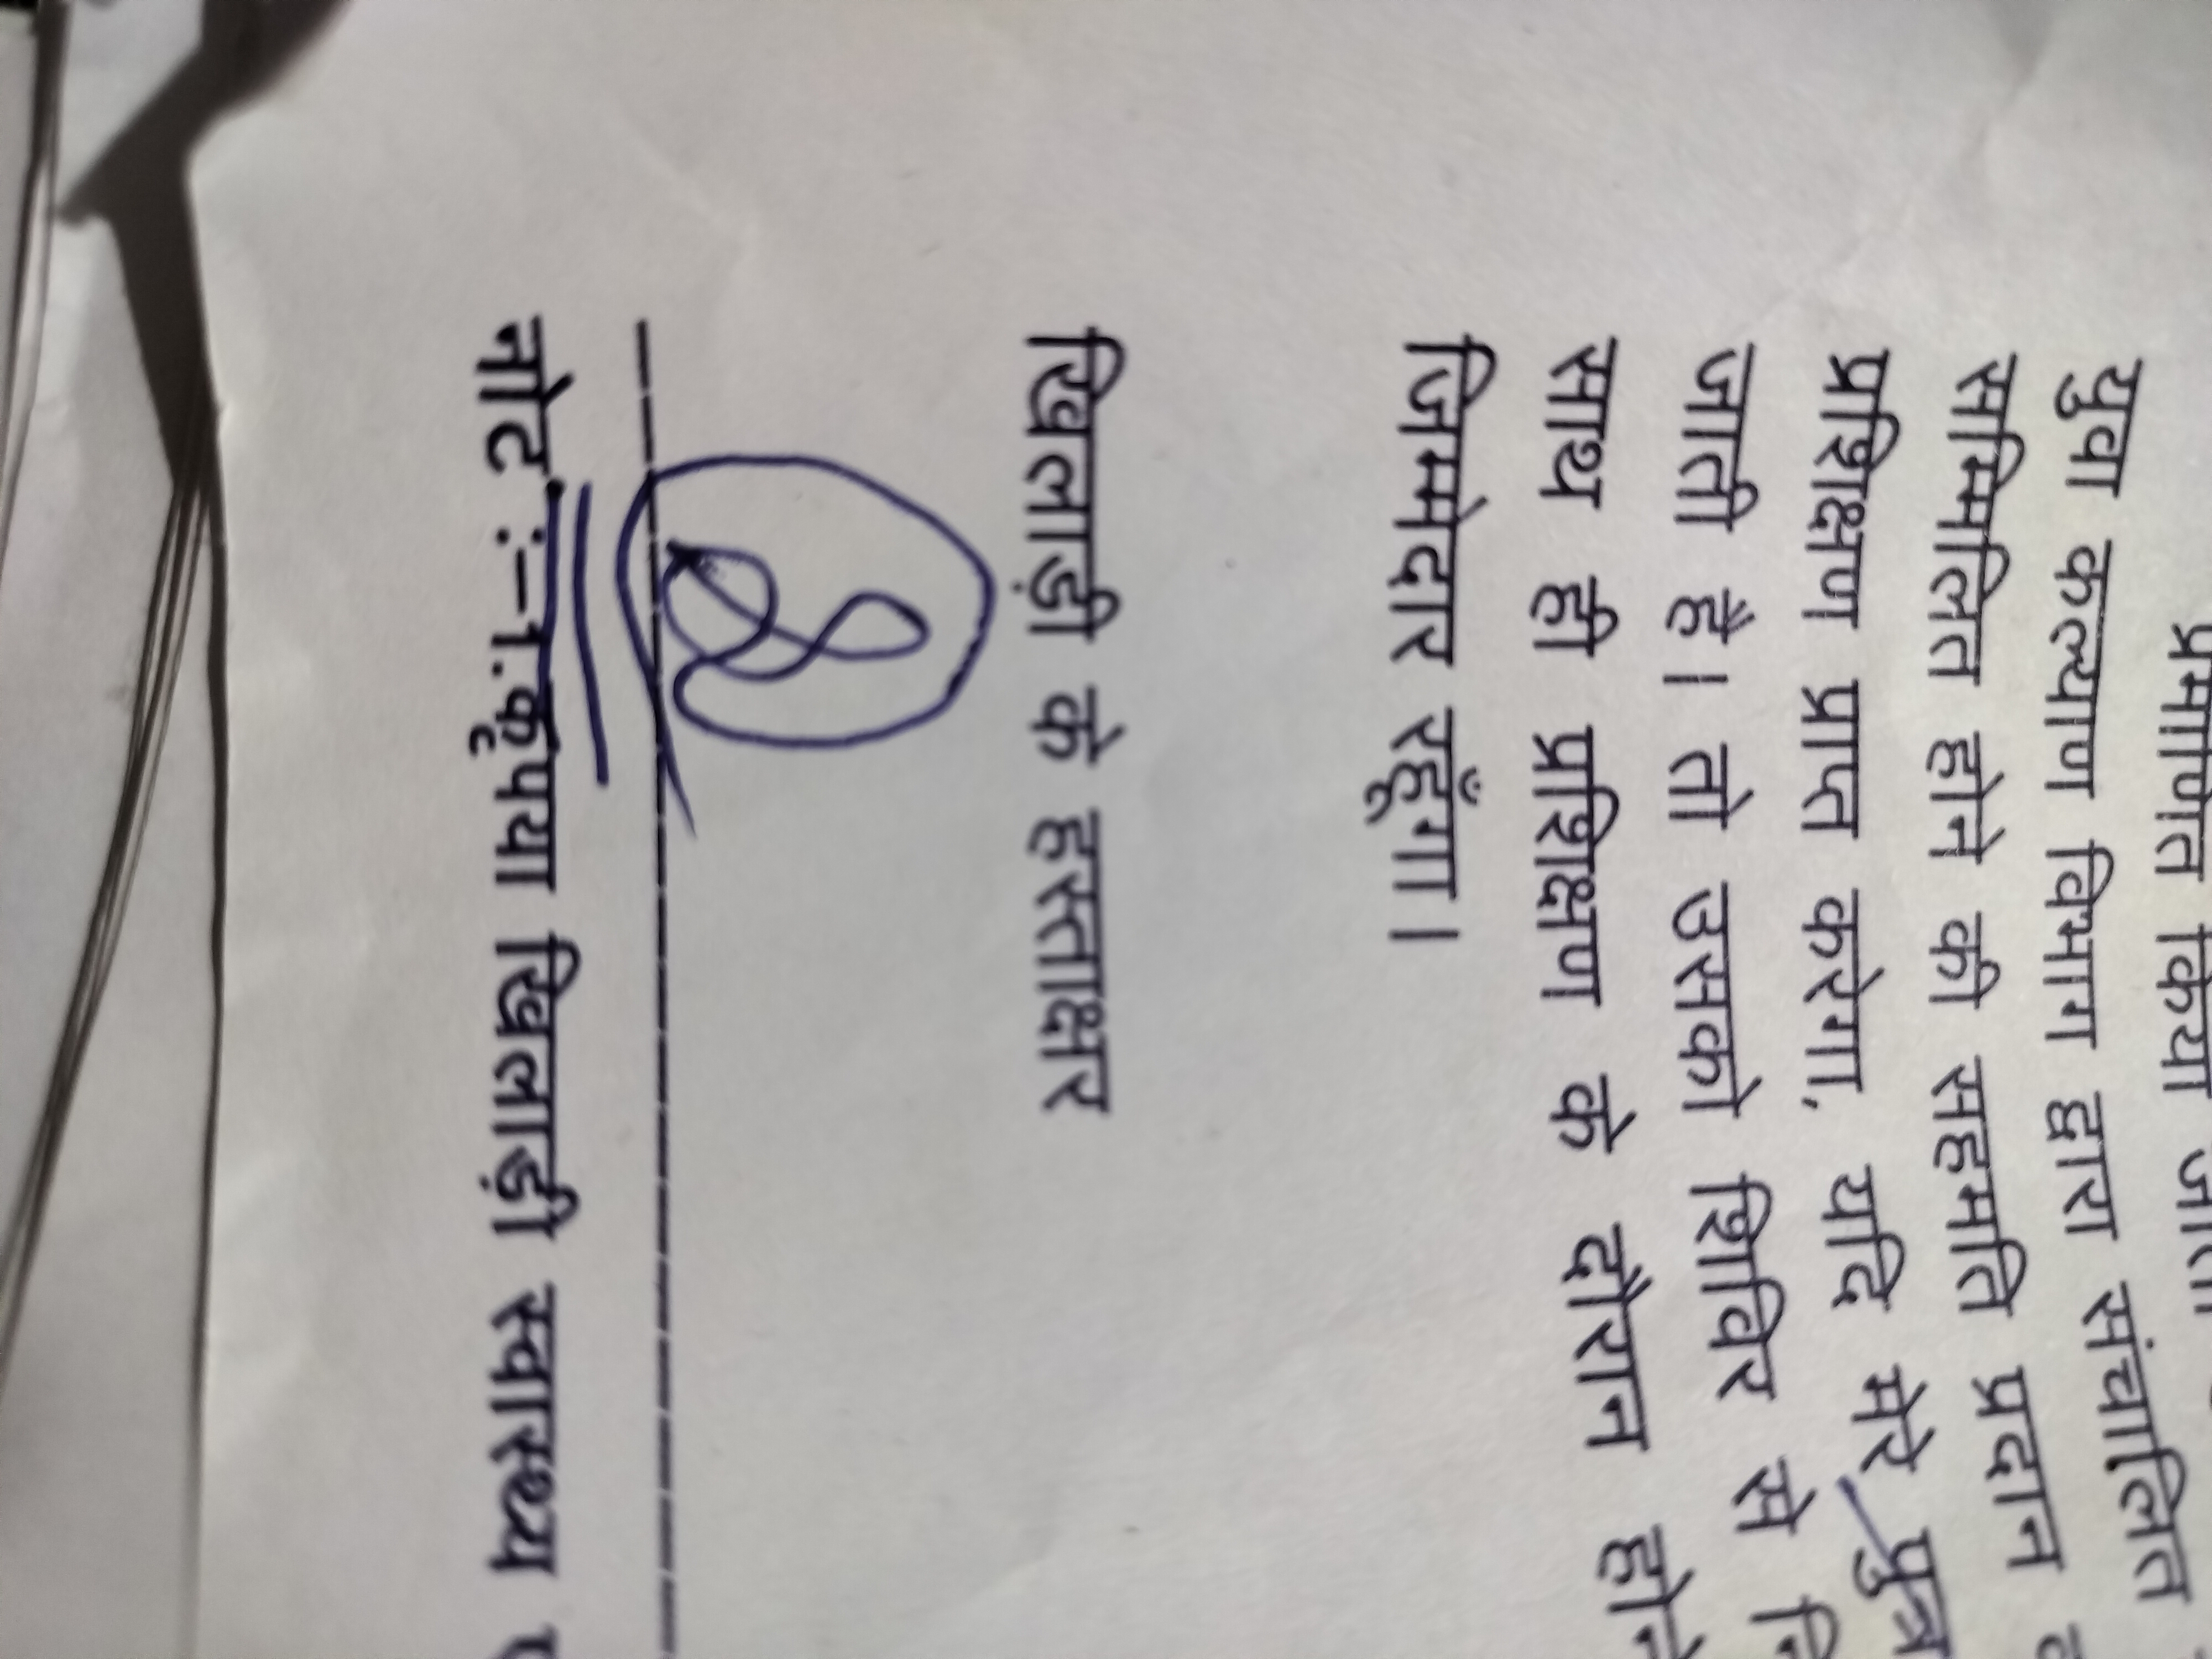 प्रमाणित किया जाता
युवा कल्याण विभाग द्वारा संचालित
सम्मिलित होने की सहमति प्रदान
प्रशिक्षण प्राप्त करेगा, यदि मेरे पुत्र
जाती है। तो उसको शिविर से
साथ ही प्रशिक्षण के दौरान होने
जिम्मेदार रहूँगा।
खिलाड़ी के हस्ताक्षर
नोट :–1.कृपया खिलाड़ी स्वास्थ्य